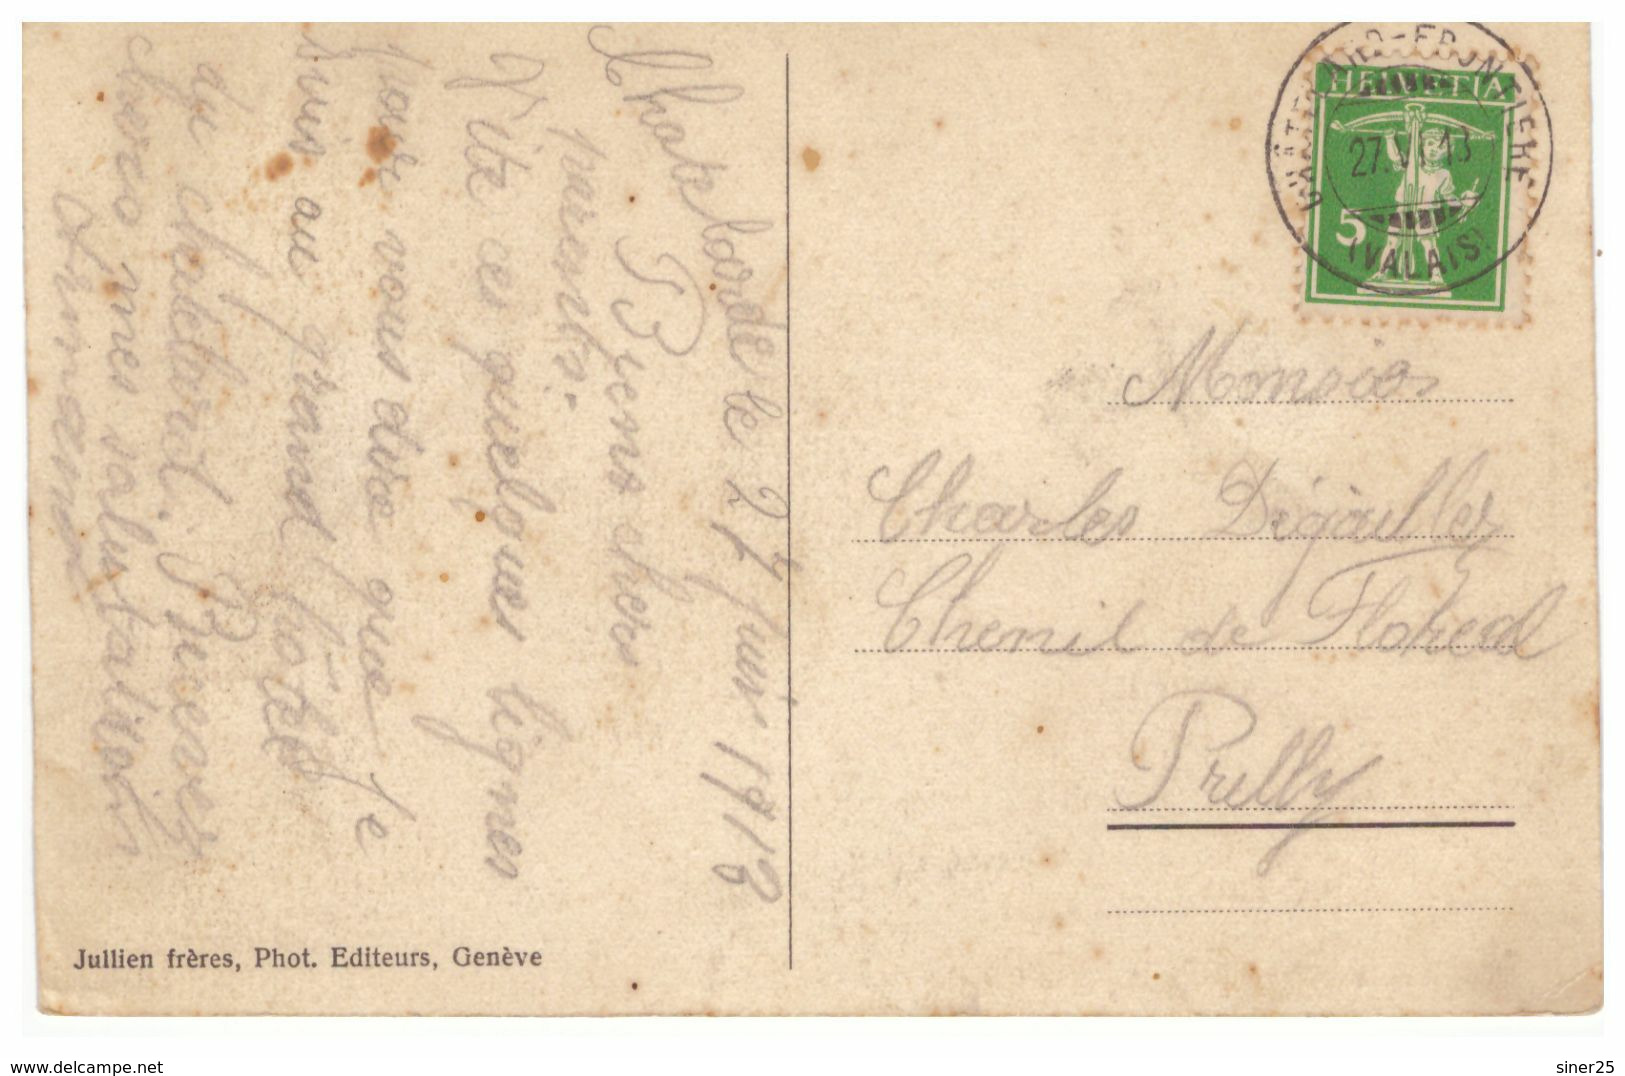 Chatelarde le 27 juin 1913
Biens chers
parents.
Vite ces quelques lignes
pour vous dire que je
suis au grand hôtel
du chatelard. Recevez
chers mes salutation
Armand
HELVETIA
5
CHÂTELARD-FRONTIÈRE
27.VI.13
(VALAIS)
Monsieur
Charles Dégailler
Chenil de
Prilly
Jullien frères, Phot. Editeurs, Genève
www.delcampe.net
siner25